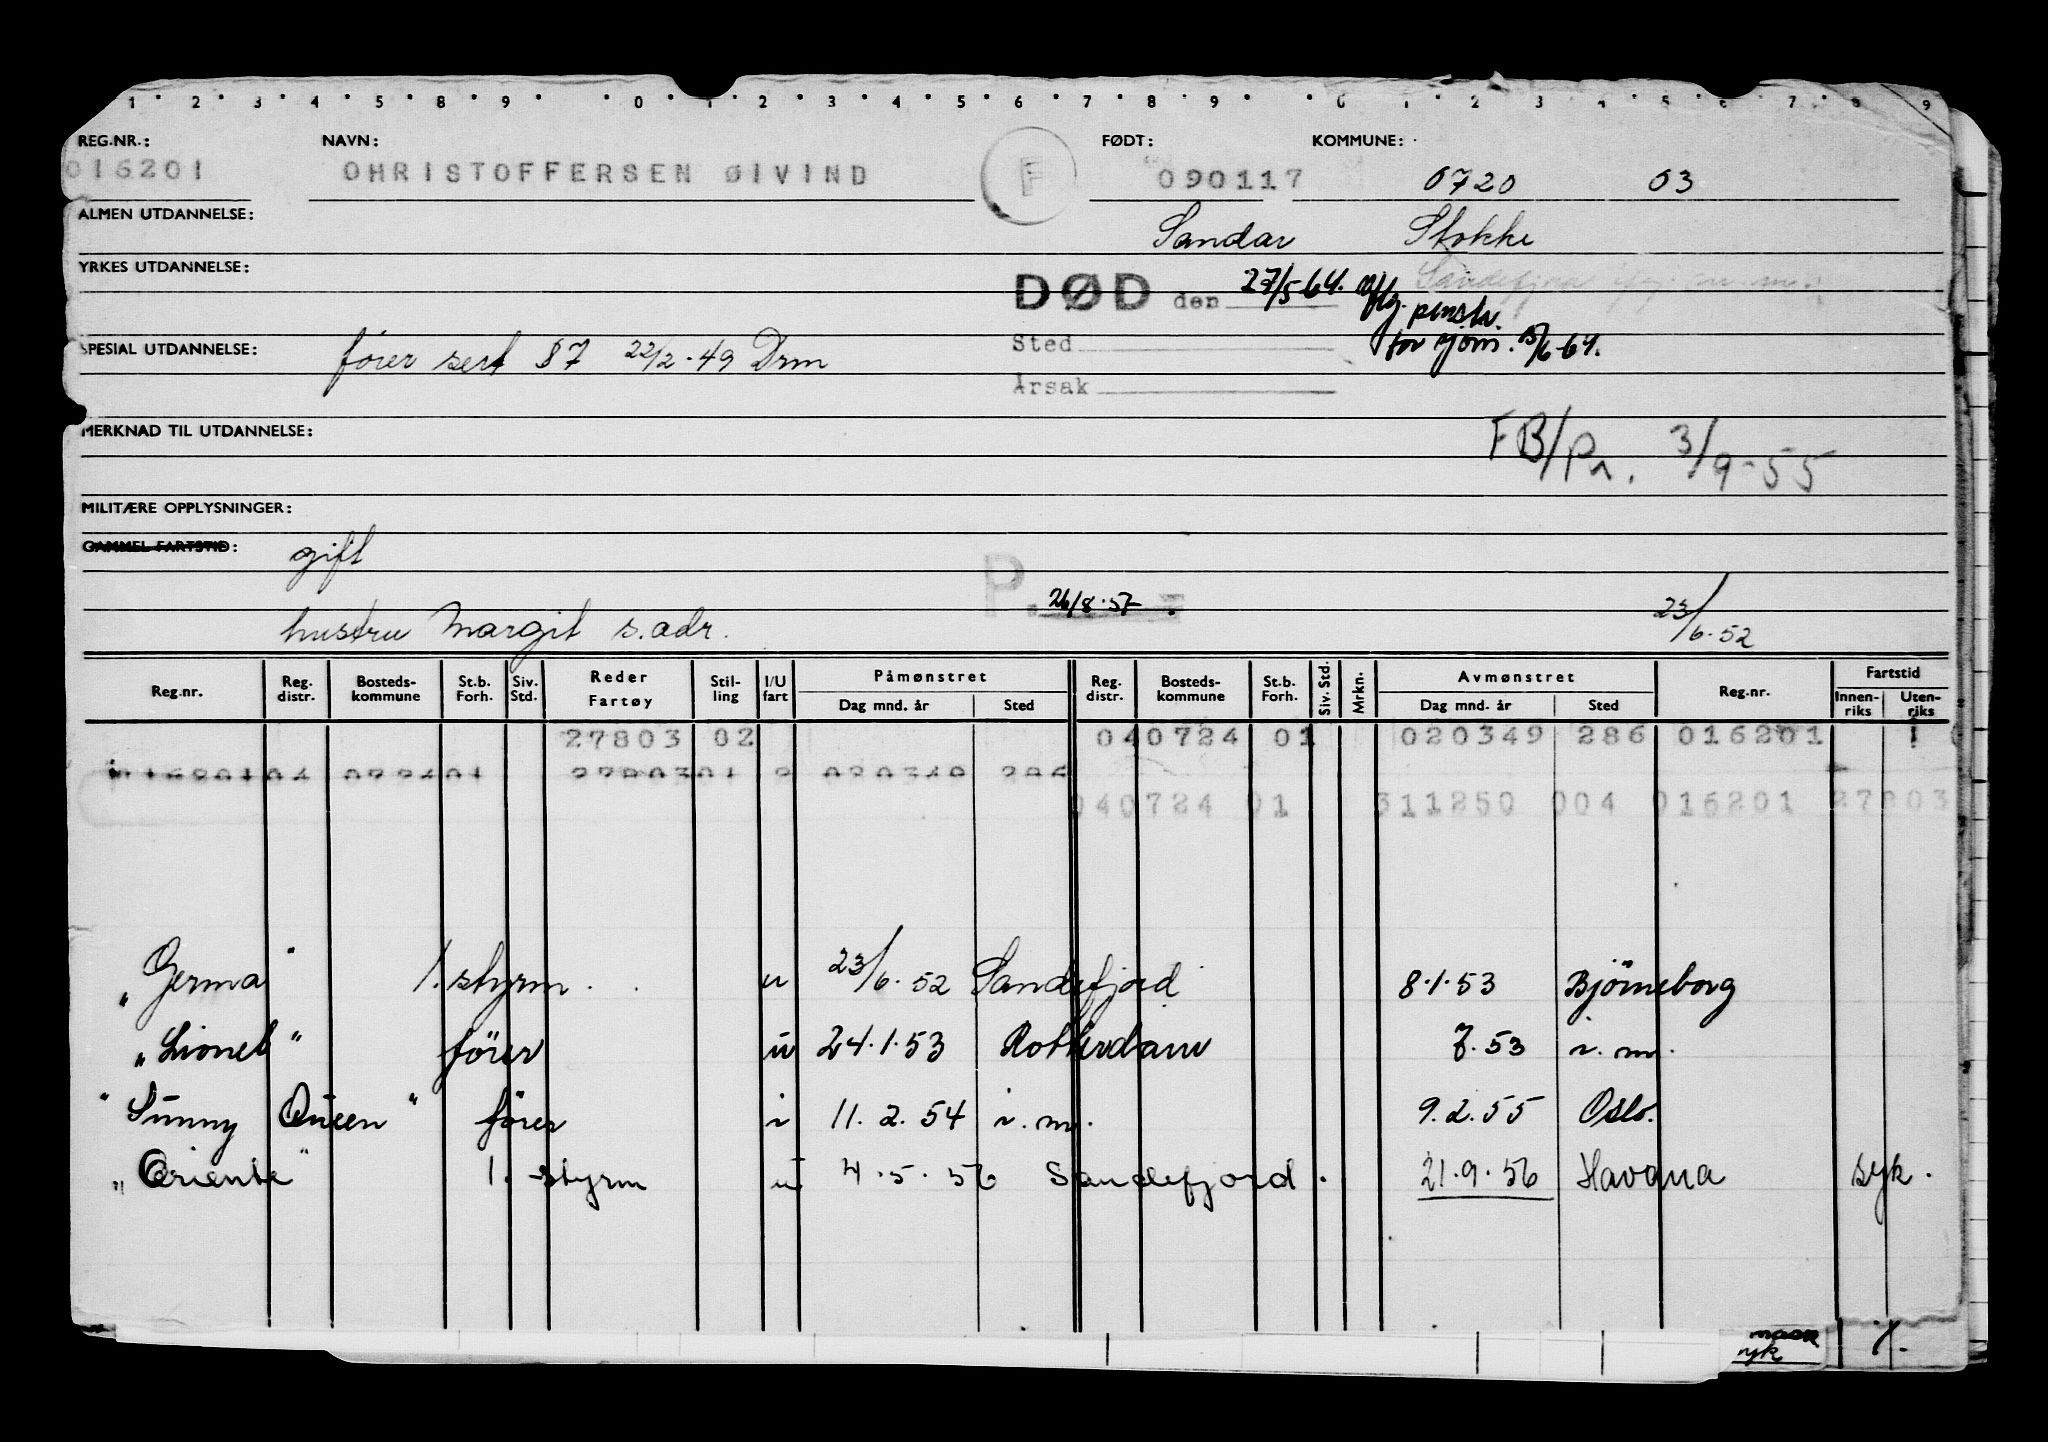 1 2 3 4 5 8 9 0 1 2 3 4 5 6 7 8 9 0 1 2 3 4 5 6 7 8 9
REG.NR.: NAVN: FØDT: KOMMUNE:
016201 OHRISTOFFERSEN ØIVIND F 090117 0720 03
ALMEN UTDANNELSE: Sandar Stokke
YRKES UTDANNELSE:
DØD den 27/5-64. iflg. penstr.
Sted for sjøm. 15/6-64.
SPESIAL UTDANNELSE: fører sert §7 22/2-49 Drm
Årsak
MERKNAD TIL UTDANNELSE: FB/Pn. 3/9-55
MILITÆRE OPPLYSNINGER:
GAMMEL FARTSTID: gift
P. 26/8.57.
hustru Margit s.adr. 23/6.52
Reg.nr. Reg. distr. Bosteds-kommune St.b. Forh. Siv. Std. Reder Fartøy Stil-ling I/U fart Påmønstret Dag mnd. år Sted Reg. distr. Bosteds-kommune St.b. Forh. Siv. Std. Mrkn. Avmønstret Dag mnd. år Sted Reg.nr. Fartstid Innen-riks Uten-riks
27803 02 040724 01 020349 286 016201 1
040724 01 311250 004 016201 27803
"Germa" 1. styrm. u 23/6.52 Sandefjord 8.1.53 Bjørneborg
"Lionel" fører u 24.1.53 Rotterdam 7.53 i.m.
"Sunny Queen" fører i 11.2.54 i.m. 9.2.55 Oslo.
"Oriente" 1. styrm u 4.5.56 Sandefjord. 21.9.56 Havana syk.
syk 1.